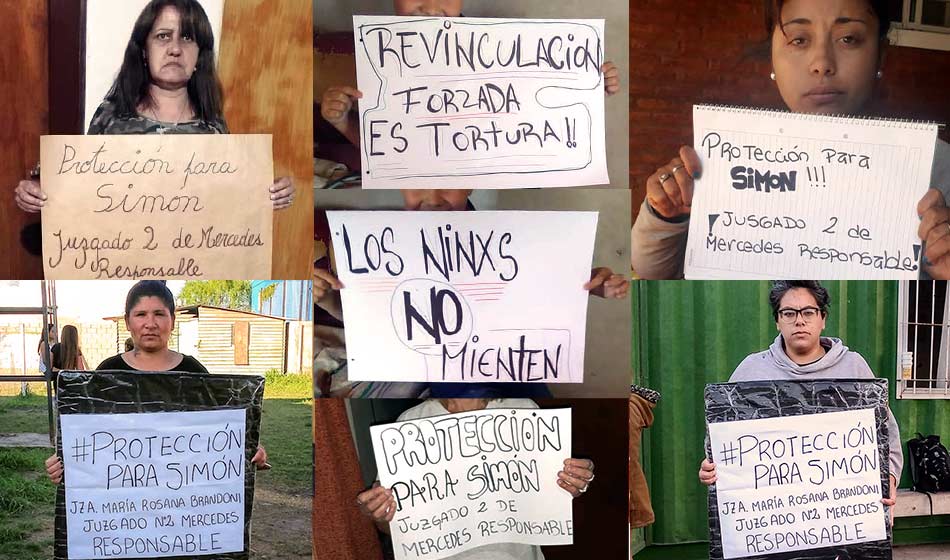 Protección para
Simon
Juzgado 2 de Mercedes
Responsalle
REVINCULACION
FORZADA
ES TORTURA!!
PROTECCIÓN PARA
SIMON!!!
¡JUSGADO 2 de
Mercedes Responsable!
LOS NINXS
NO
MIENTEN
#PROTECCIÓN
PARA SIMÓN
JZA. MARÍA ROSANA BRANDONI
JUZGADO Nº2 MERCEDES
RESPONSABLE
PROTECCION
PARA SIMÓN
JUZGADO 2 DE
MERCEDES RESPONSABLE
#PROTECCIÓN
PARA SIMÓN
JZA. MARÍA ROSANA BRANDONI
JUZGADO Nº2 MERCEDES
RESPONSABLE